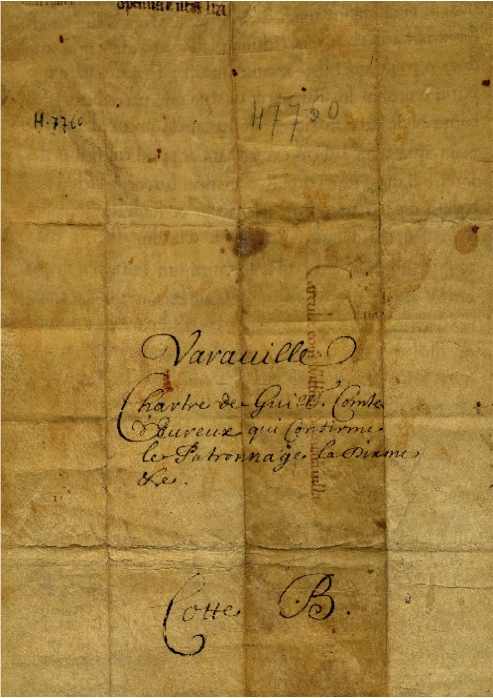 H. 7760
H 7760
Varauille
Chartre de Guill. Comte
D'Eureux qui Confirme
le Patronnage la Dixme
&c.
Cotte B.